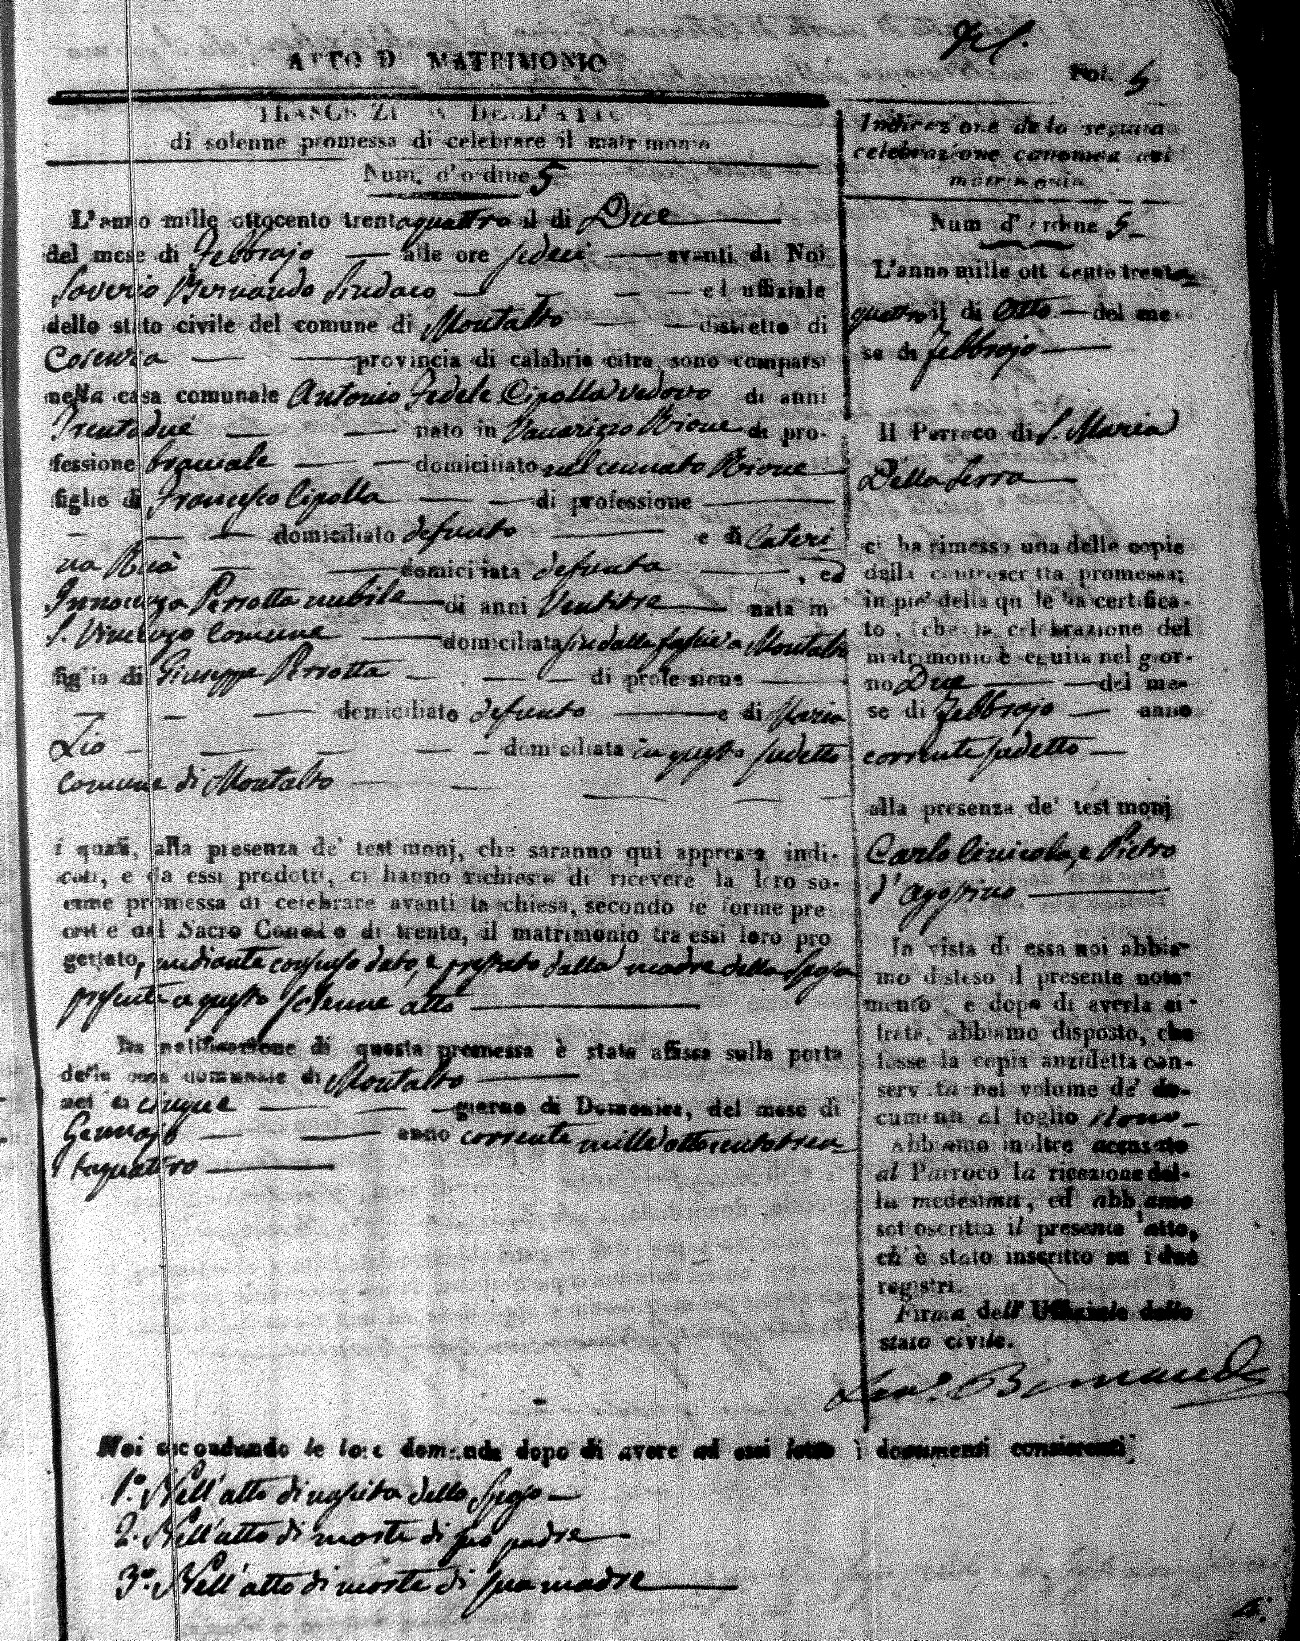 ATTO D MATRIMONIO
Fol. 5
DELL'ATTO
di solenne promessa di celebrare il matrimonio
Num. d'ordine 5
L'anno mille ottocento trentaquattro il di Due
del mese di Febbrajo alle ore sedeci avanti di Noi
Saverio Bernardo Sindaco ed uffiziale
dello stato civile del comune di Montalto distretto di
Cosenza provincia di calabria citra, sono comparsi
nella casa comunale Antonio Fedele Cipolla vedovo di anni
Trentadue nato in Vaccarizzo Rione di pro-
fessione bracciale domiciliato nel cennato Rione
figlio di Francesco Cipolla di professione
domiciliato defunto e di Cateri
na domiciliata defunta , ed
Innocenza Perrotta nubile di anni Ventitre nata in
S. Vincenzo Comune domiciliata sin dalle fascie a Montalto
figlia di Giuseppe Perrotta di professione
domiciliato defunto e di Maria
Lio domiciliata in questo sudetto
Comune di Montalto
i quali, alla presenza de' testimonj, che saranno qui appresso indi-
cati, e da essi prodotti, ci hanno richiesto di ricevere la loro so-
lenne promessa di celebrare avanti la chiesa, secondo le forme pre
critte dal Sacro Concilio di trento, il matrimonio tra essi loro pro
gettato, mediante consenso dato, e prestato dalla madre della Sposa
presente a questo solenne atto
La notificazione di questa promessa è stata affissa sulla porta
della casa comunale di Montalto
nel di cinque giorno di Domenica, del mese di
Gennajo anno corrente mille ottocentotren
taquattro
Indicazione della seguita
celebrazione canonica del
matrimonio
Num d'ordine 5
L'anno mille ottocento trenta
quattro il di Otto del me-
se di Febbrajo
Il Parroco di S. Maria
Della Serra
ci ha rimesso una delle copie
della controscritta promessa;
in piè della quale ha certifica-
to, che la celebrazione del
matrimonio è seguita nel gior-
no Due del me-
se di Febbrajo anno
corrente sudetto
alla presenza de' testimonj
Carlo Cinicola, e Pietro
d'Agostino
In vista di essa noi abbia-
mo disteso il presente nota-
mento, e dopo di averla ci-
frata, abbiamo disposto, che
fosse la copia anzidetta con-
servata nel volume de' do-
cumenti al foglio
Abbiamo inoltre accusato
al Parroco la ricezione del-
la medesima, ed abbiamo
sottoscritto il presente atto,
ch'è stato inscritto su i due
registri.
Firma dell'Uffiziale dello
stato civile.
Sav.o Bernardo
Noi secondando le loro domande dopo di avere ad essi letto i documenti consistenti
1.o Nell'atto di nascita dello Sposo
2. Nell'atto di morte di suo padre
3.o Nell'atto di morte di sua madre